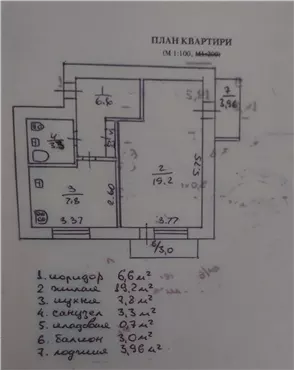 ПЛАН КВАРТИРИ
(М 1:100, М1:200)
7
3,96
1
6.6
4
3.3
2
19.2
5.75
3
7.8
2.60
3.37
3.77
6/3,0
1. коридор 6,6 м²
2. жилая 19,2 м²
3. кухня 7,8 м²
4. санузел 3,3 м²
5. кладовая 0,7 м²
6. балкон 3,0 м²
7. лоджия 3,96 м²